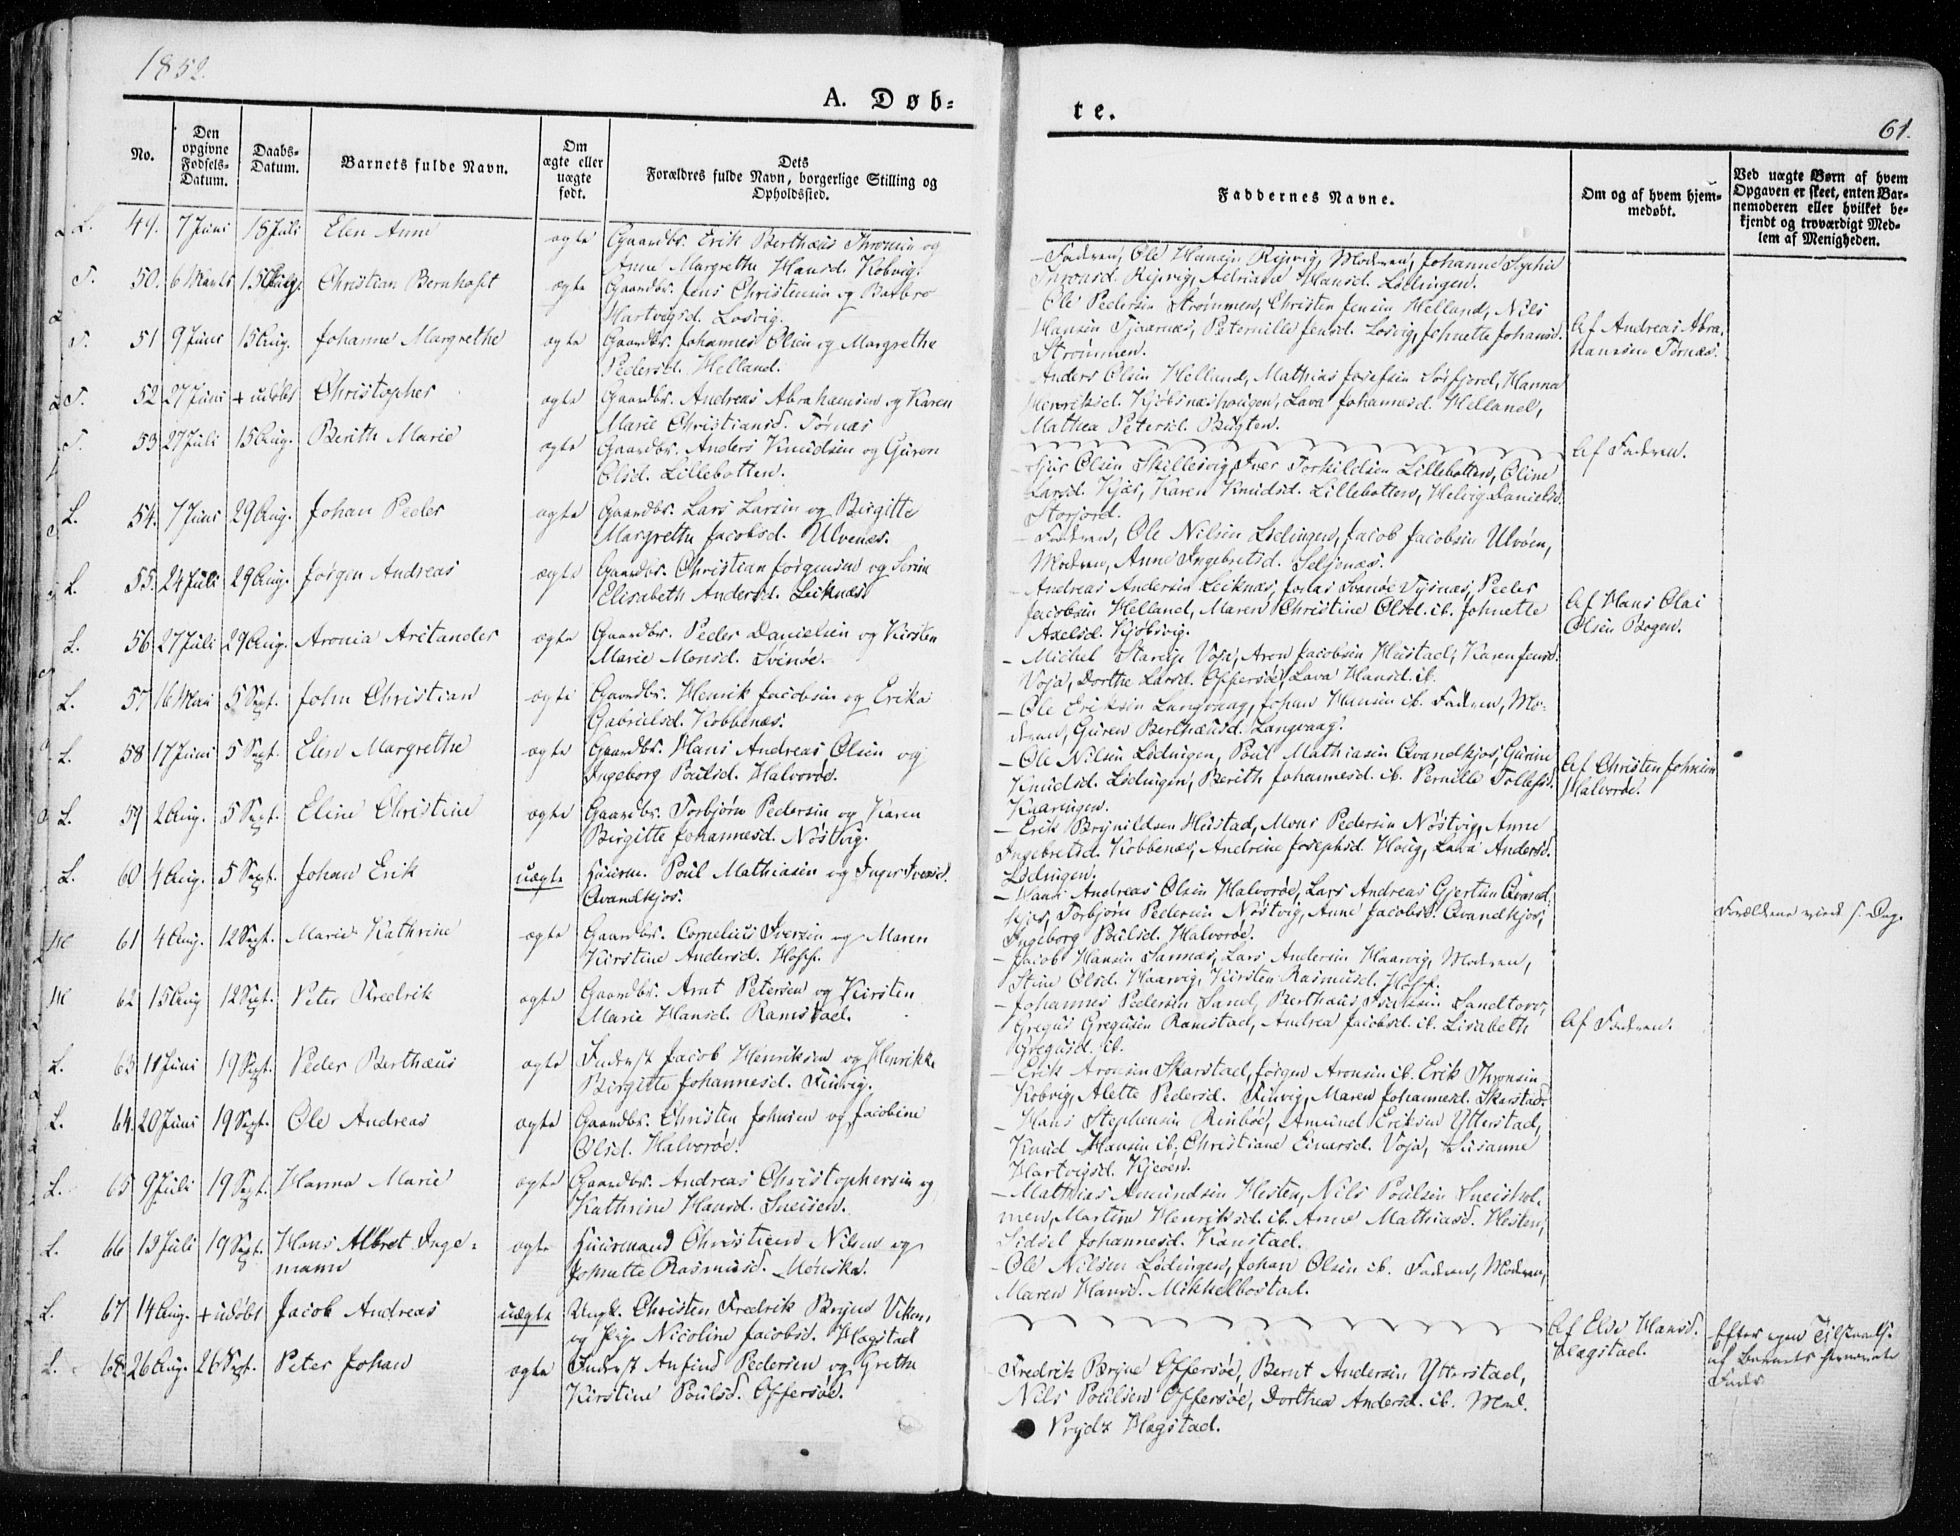 1852.
A. Døb-
No.
Den opgivne Fødsels-Datum.
Daabs-Datum.
Barnets fulde Navn.
Om ægte eller uægte født.
Dets Forældres fulde Navn, borgerlige Stilling og Opholdssted.
L. 49. 7 Juni 18 Juli Elen Anne ægte Gaardbr. Erik Berthæus Thronsen og
Anne Margrethe Hansd. Kobvig.
T. 50. 6 Marts 15 Aug. Christian Bernhoft ægte Gaardbr. Jens Christensen og Barbro
Hartvigsd. Losvig.
T. 51 9 Juni 15 Aug. Johanne Margrethe ægte Gaardbr. Johannes Olsen og Margrethe
Pedersd. Helland.
T. 52 27 Juni + udøbt Christopher ægte Gaardbr. Andreas Abrahamsen og Karen
Marie Christiansd. Tørnæs
T. 53 27 Juli 15 Aug. Berith Marie ægte Gaardbr. Anders Knudsen og Guren
Olsd. Lillebotten.
L. 54. 7 Juni 29 Aug. Johan Peder ægte Gaardbr. Lars Larsen og Birgitte
Margrethe Jacobsd. Ulvenæs.
L. 55. 24 Juli 29 Aug. Jørgen Andreas ægte Gaardbr. Christian Jørgensen og Serine
Elisabeth Andersd. Leiknæs
L. 56 27 Juli 29 Aug. Aronia Aritander ægte Gaardbr. Peder Danielsen og Kirsten
Marie Monsd. Svinøe.
L. 57 16 Mai 5 Sept. John Christian ægte Gaardbr. Henrik Jacobsen og Erika
Gabrielsd. Kobbenæs.
L. 58 17 Juni 5 Sept. Elen Margrethe ægte Gaardbr. Hans Andreas Olsen og
Ingeborg Poulsd. Halvorøe.
L. 59 2 Aug. 5 Sept. Eline Christine ægte Gaardbr. Torbjørn Pedersen og Karen
Birgitte Johannesd. Nøstvig.
L. 60 4 Aug. 5 Sept. Johan Erik uægte Huusm. Poul Mathiasen og Inger Iversd.
Qvandkjos.
M 61 4 Aug. 12 Sept. Marie Kathrine ægte Gaardbr. Cornelius Iversen og Maren
Kirstine Andersd. Hoff.
M 62 15 Aug 12 Sept. Peter Fredrik ægte Gaardbr. Arnt Petersen og Kirsten
Marie Hansd. Ramstad.
L. 63 11 Juni 19 Sept. Peder Berthæus ægte Inderst Jacob Henriksen og Henrikke
Birgitte Johannesd. Finvig.
L. 64. 20 Juni 19 Sept. Ole Andreas ægte Gaardbr. Christen Johnsen og Jacobine
Olsd. Halvorøe.
L. 65 9 Juli 19 Sept. Hanna Marie ægte Gaardbr. Andreas Christophersen og
Kathrine Hansd. Sneisen.
L. 66 13 Juli 19 Sept. Hans Albret Inge- ægte Huusmand Christian Nilsen og
mann Johnette Rasmusd.
L. 67 14 Aug. + udøbt Jacob Andreas uægte Ungk. Christen Fredrik Bryne Viken,
og Pige Nicoline Jacobsd. Hægstad
L. 68 26 Aug. 26 Sept. Peter Johan ægte Inderst Anfind Pedersen og Grethe
Kirstine Poulsd. Offersøe.
te.
61.
Faddernes Navne.
Om og af hvem hjemmedøbt.
Ved uægte Børn af hvem Opgaven er skeet, enten Barnemoderen eller hvilket bekjendt og troværdigt Medlem af Menigheden.
- Faderen, Ole Hansen Rejvig, Moderen, Johanne Sophie
Thronsd. Rejvig, Adriana Hansd. Lødingen.
- Ole Pedersen Strømmen, Christen Jensen Helland, Nils
Hansen Tjaarnæs, Peternille Jensd. Losvig, Johnette Johansd.
Strømmen.
Af Andreas Abra-
hamsen Tørnæs.
- Anders Olsen Helland, Mathias Josefsen Sørfjord, Hanna
Henriksd. Kjøbsnæshougen, Lava Johannesd. Helland,
Mathea Petersd. Bugten.
Af Faderen.
- Sjur Olsen Skillesvig, Iver Torkildsen Lillebotten, Oline
Larsd. Kjær, Karen Knudsd. Lillebotten, Helvig Danielsd.
Storjord.
- Faderen, Ole Nilsen Lødingen, Jacob Jacobsen Ulvøen,
Moderen, Anne Ingebretsd. Seljenæs.
- Andreas Andersen Leiknæs, Jonas Svanøe Tysnæs, Peder
Jacobsen Helland, Maren Christine Olsd. ib. Johnette
Axelsd. Kjøbsvig.
Af Hans Olai
Olsen Bogen.
- Michel Voje, Aron Jacobsen Hustad, Karen Jensd.
Voja, Dorthe Larsd. Offersøe, Lava Hansd. ib.
- Ole Eriksen Langvaag, Johan Hansen ib. Faderen, Mo-
deren, Guren Berthæusd. Langvaag.
- Ole Nilsen Lødingen, Poul Mathiasen Qvandkjos, Gurine
Knudsd. Lødingen, Berith Johannesd. ib. Pernille Tollefsd.
Kaaringen.
Af Christen Johnsen
Halvorøe.
- Erik Brynildsen Hustad, Mons Pedersen Nøstvig, Anne
Ingebretsd. Kobbenæs, Andrine Josephsd. Houg, Lava Andersd.
Lødingen.
- Hans Andreas Olsen Halvorøe, Lars Andreas Gjertsen Qvand-
kjos, Torbjørn Pedersen Nøstvig, Anne Jacobsd. Qvandkjos,
Ingeborg Poulsd. Halvorøe.
Forældrene viede s. Dag.
- Jacob Hansen Sannæs, Lars Andersen Haarvig, Moderen,
Stine Olsd. Haarvig, Kirsten Rasmusd. Hoff.
- Johannes Pedersen Sand, Berthæus Isaksen Sandtorv,
Gregus Gregusen Ramstad, Andrea Jacobsd. ib. Lisabeth
Gregusd. ib.
Af Faderen.
- Erik Aronsen Skarstad, Jørgen Aronsen ib. Erik Thronsen
Kobvig, Alette Pedersd. Finvig, Maren Johannesd. Skarstad.
- Hans Stephensen Rinbøe, Amund Eriksen Ytterstad,
Knud Hansen ib. Christiane Einarsd. Voja, Susanne
Hartvigsd. Kjeøen.
- Mathias Amundsen Hesten, Nils Poulsen Sneishol-
men, Martine Henriksd. ib. Anne Mathiasd. Hesten,
Sidsel Johannesd. Kanstad.
- Ole Nilsen Lødingen, Johan Olsen ib. Faderen, Moderen,
Maren Hansd. Mikkelbostad.
Af Elde Hansd.
Hægstad.
Efter egen Tilstaaelse
af Barnets
Fader
Fredrik Bryne Offersøe, Bernt Andersen Ytterstad,
Nils Poulsen Offersøe, Dorthea Andersd. ib. Mad.
Prydz Hægstad.